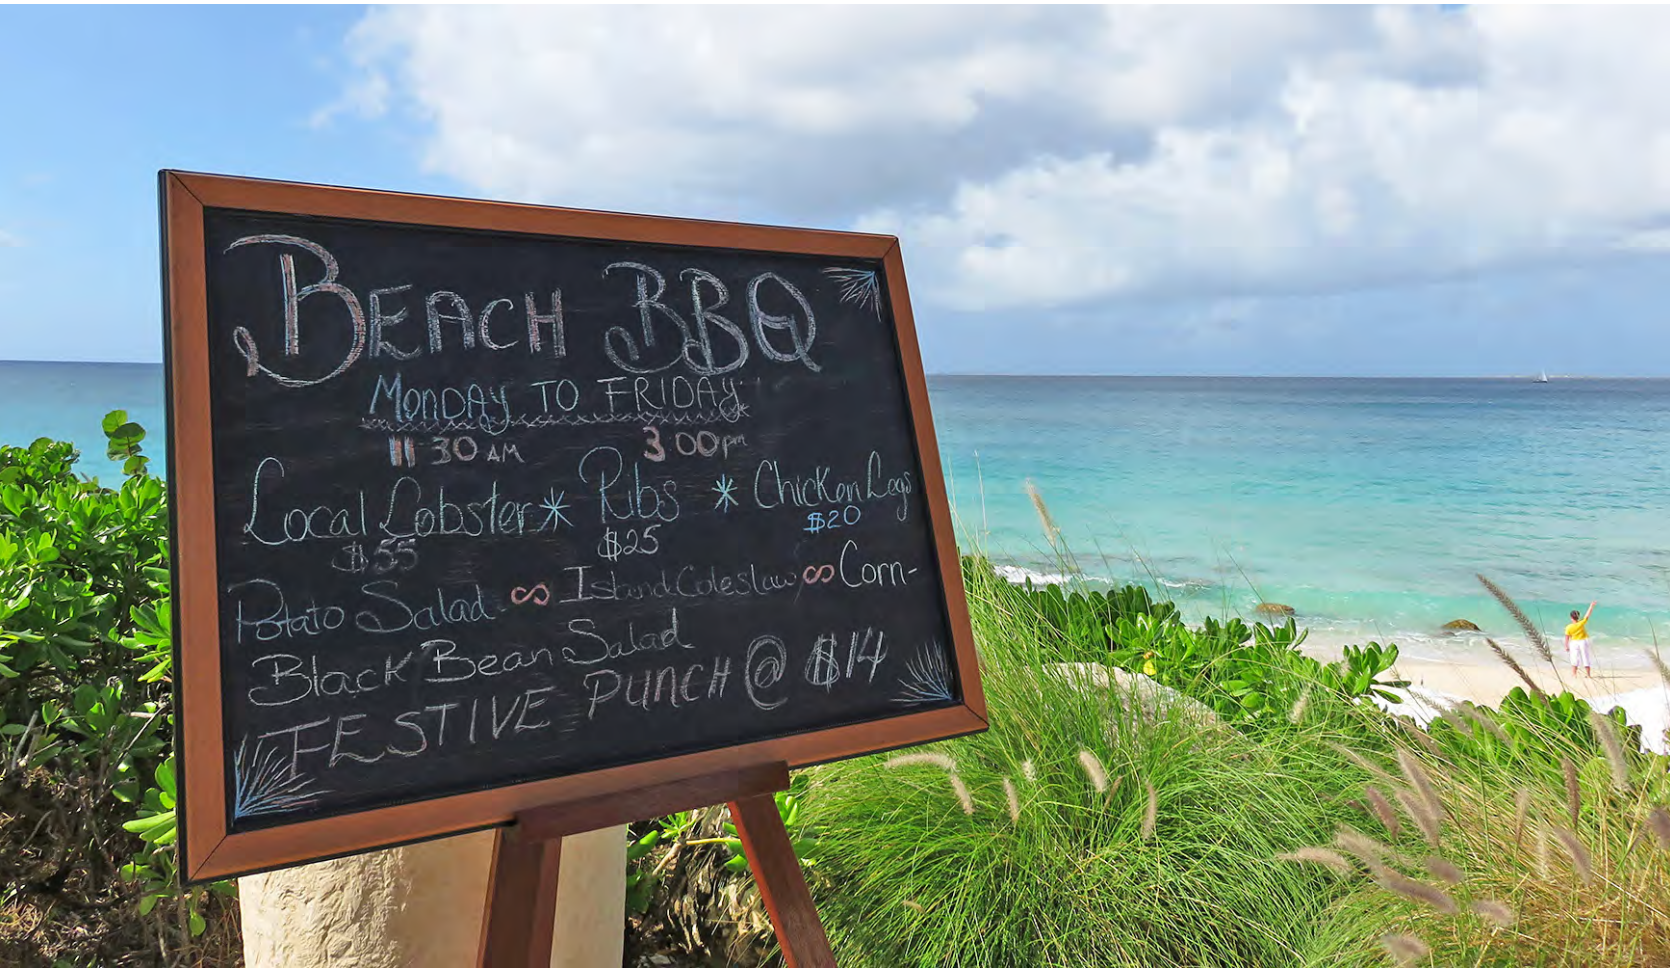 BEACH BBQ
MONDAY TO FRIDAY
11:30 AM 3.00pm
Local Lobster * Ribs * Chicken Legs
$55 $25 $20
Potato Salad ∞ Island Coleslaw ∞ Corn-
Black Bean Salad
FESTIVE PUNCH @ $14